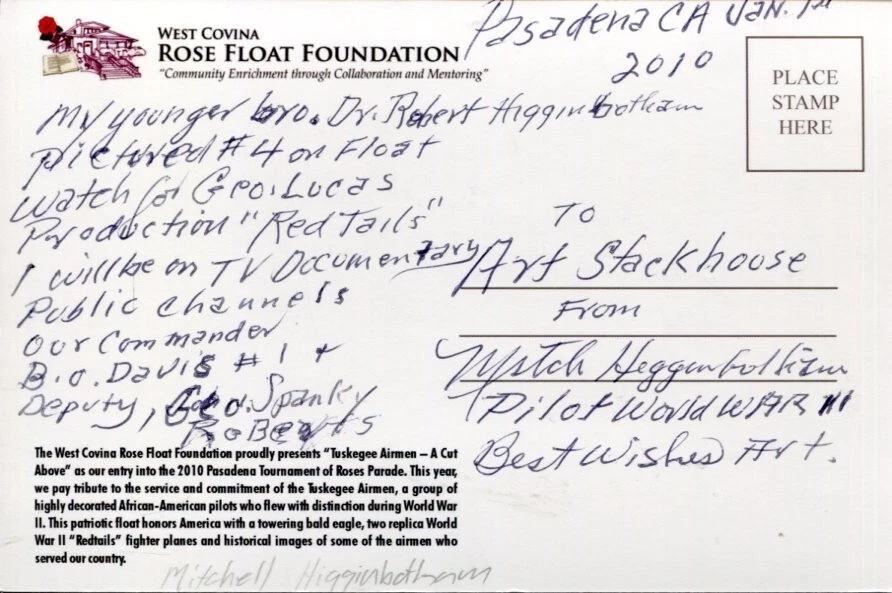 WEST COVINA
ROSE FLOAT FOUNDATION
"Community Enrichment through Collaboration and Mentoring"
Pasadena CA Jan. 1st
2010
PLACE
STAMP
HERE
My younger bro. Dr. Robert Higginbotham
pictured #4 on Float
Watch for Geo. Lucas
Production "Red Tails"
I will be on TV Documentary
Public Channels
Our Commander
B.O. Davis #1 +
Deputy, Geo. Spanky
Roberts
To
Art Stackhoose
From
Mitch Higginbotham
Pilot World WAR II
Best Wishes Art.
The West Covina Rose Float Foundation proudly presents "Tuskegee Airmen – A Cut
Above" as our entry into the 2010 Pasadena Tournament of Roses Parade. This year,
we pay tribute to the service and commitment of the Tuskegee Airmen, a group of
highly decorated African-American pilots who flew with distinction during World War
II. This patriotic float honors America with a towering bald eagle, two replica World
War II "Redtails" fighter planes and historical images of some of the airmen who
served our country.
Mitchell Higginbotham